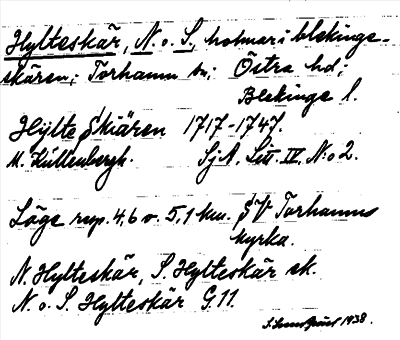 Hylteskär, N. o S., holmar i blekinge-
skären; Torhamn sn; Östra hd;
Blekinge l.
Hÿlte Skiären 1717-1747.
M. Küllenbergh. SjA. Litt. IV. No 2.
Läge resp. 4,6 o. 5,1 km. SV Torhamns
kyrka.
N. Hylteskär, S. Hylteskär sk.
N. o S. Hylteskär G.11.
1938.